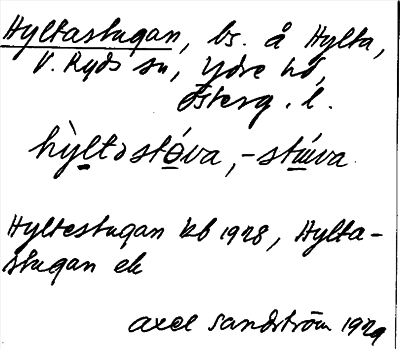 Hyltastugan, bs. å Hylta,
V. Ryds sn, Ydre hd,
Österg. l.
hỳltostóva, -stúva
Hyltestugan kb 1928, Hylta-
stugan ek
Axel Sandström 1929